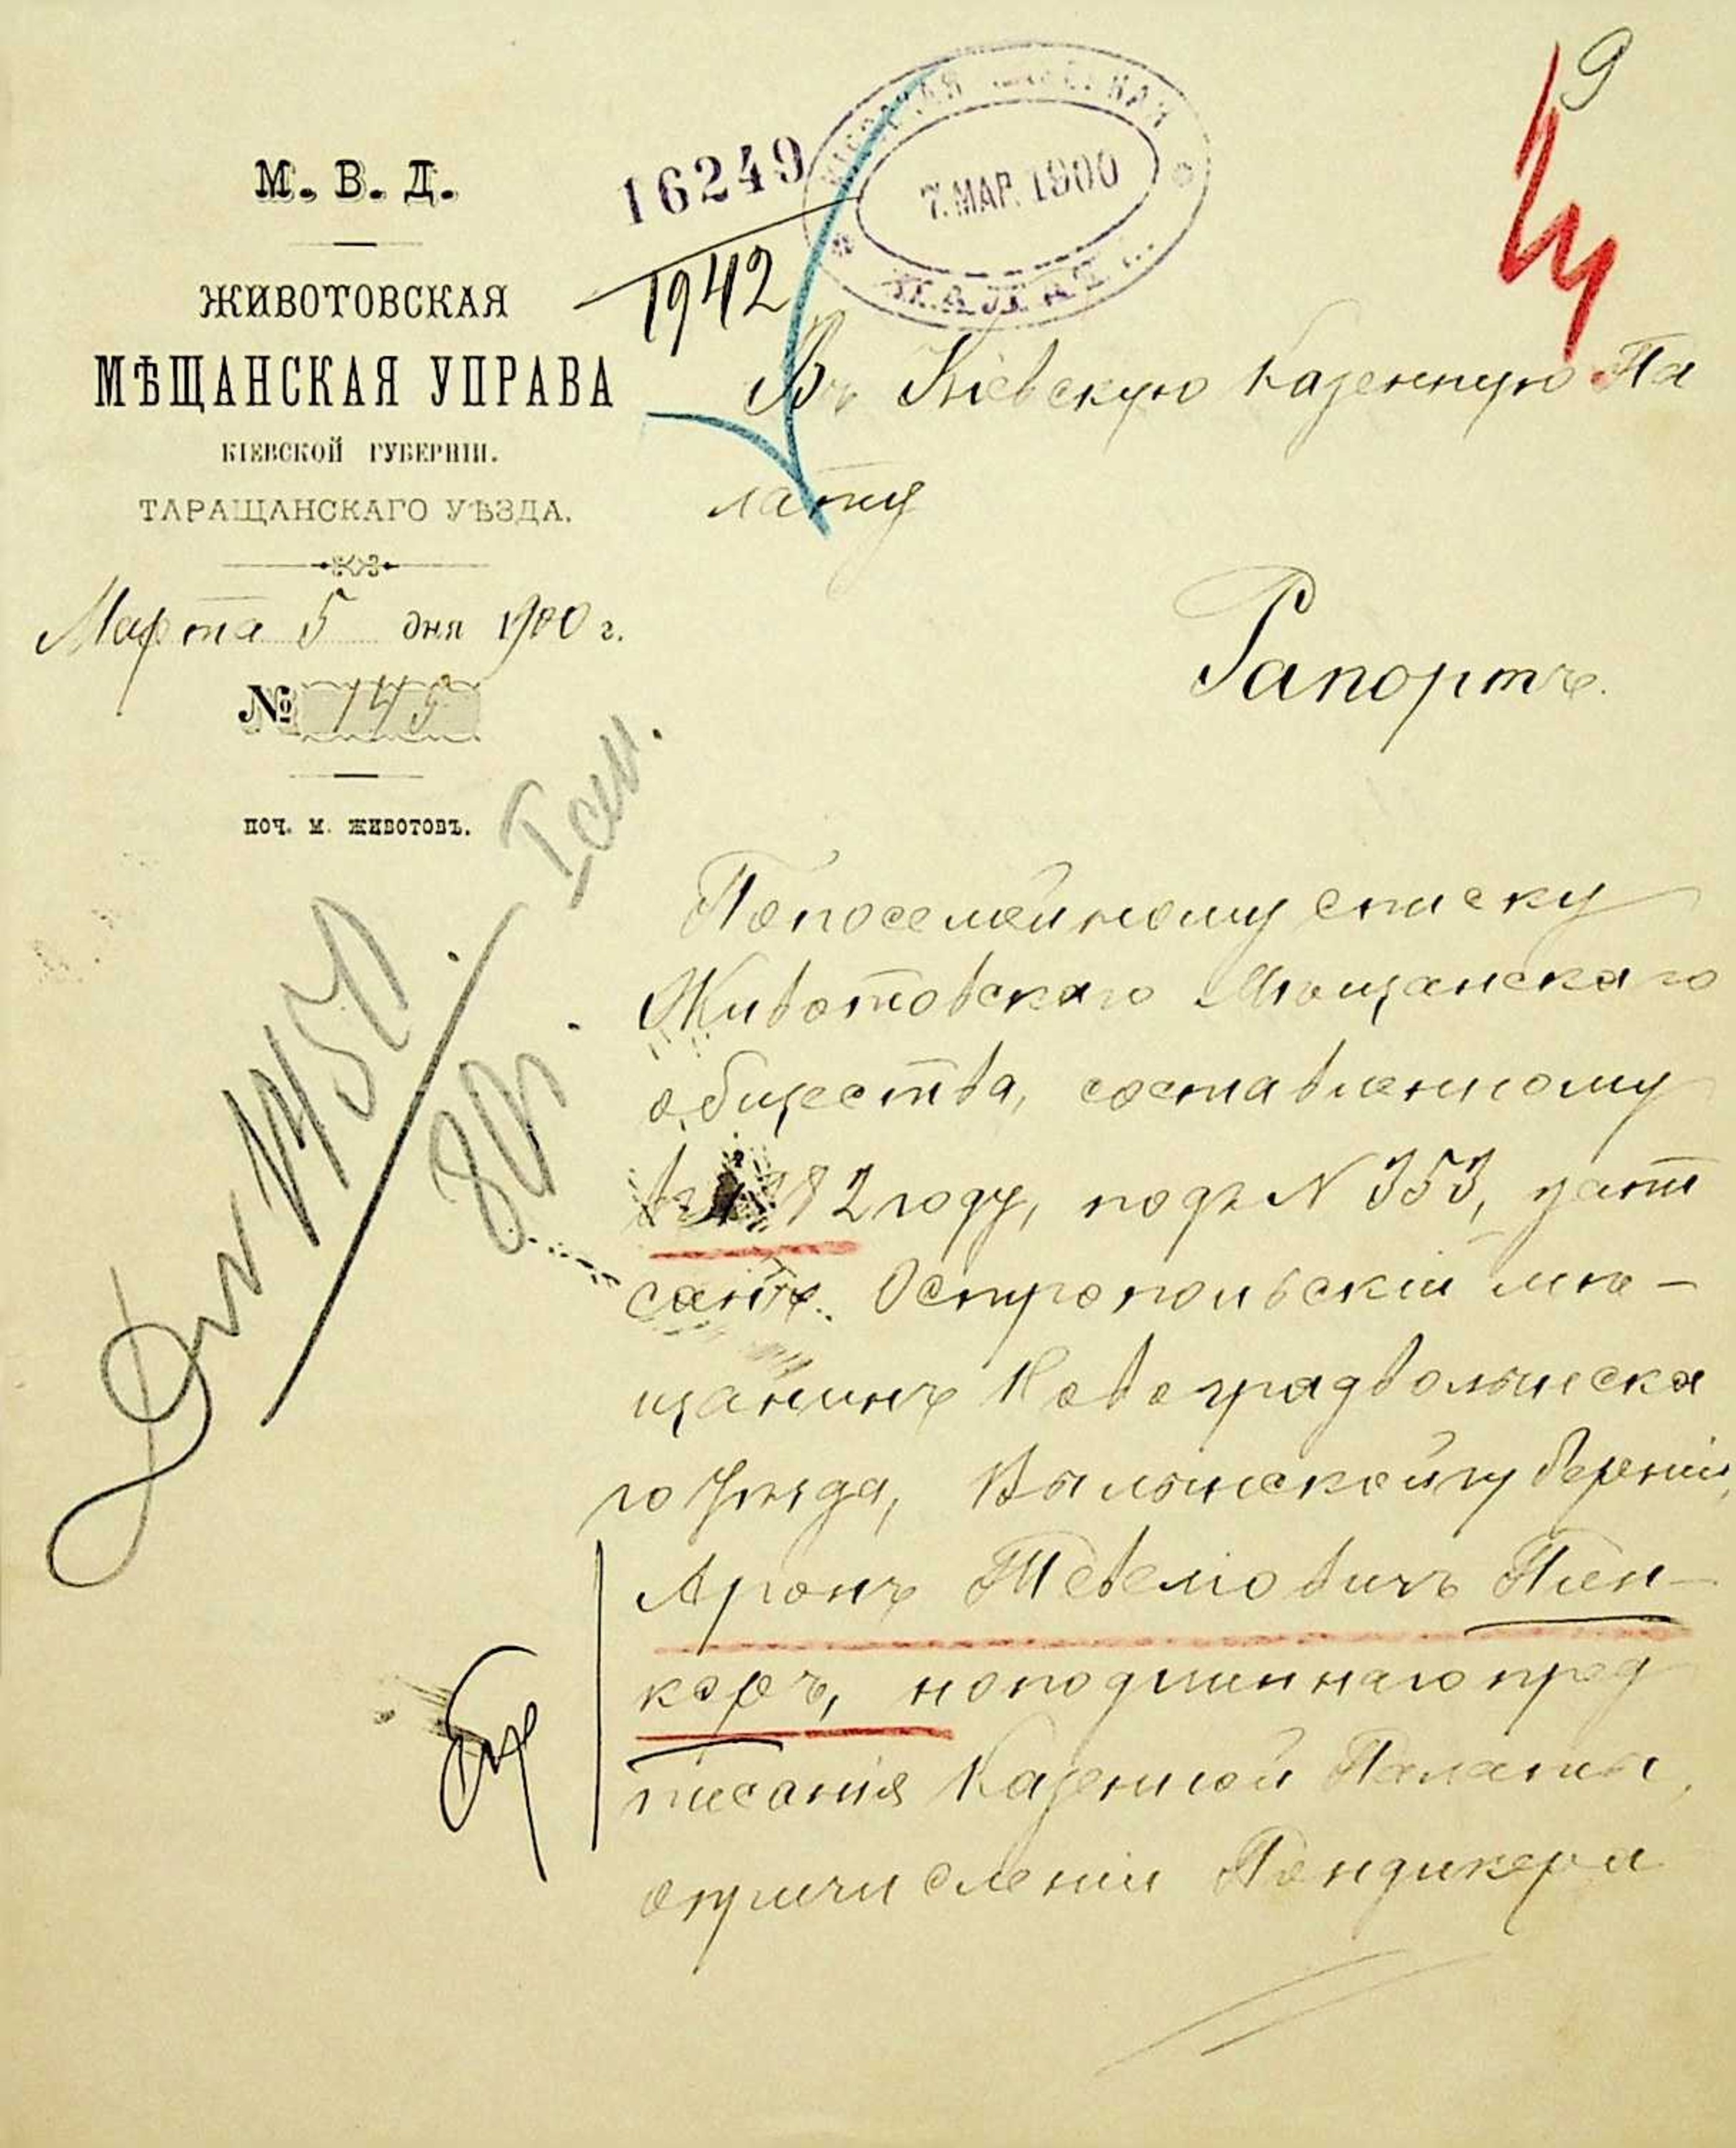 9
М. В. Д.
ЖИВОТОВСКАЯ
МѢЩАНСКАЯ УПРАВА
КІЕВСКОЙ ГУБЕРНІИ.
ТАРАЩАНСКАГО УѢЗДА.
Марта 5 дня 1900 г.
№ 145
ПОЧ. М. ЖИВОТОВЪ.
16249
1942
7. МАР. 1900
Въ Кіевскую Казенную Па
лату
Рапортъ.
Попосемейному списку
Животовскаго Мѣщанскаго
общества, составленному
въ 1882 году, подъ N 353, запи
санъ. Остропольскій мѣ-
щанинъ Новоградволынска
го Уѣзда, Волынскойгуберніи,
Аронъ Тевелiовичъ Пен-
керъ, ноподлиннаго пред
писанія Казенной Палаты,
опричисленіи Пендикера